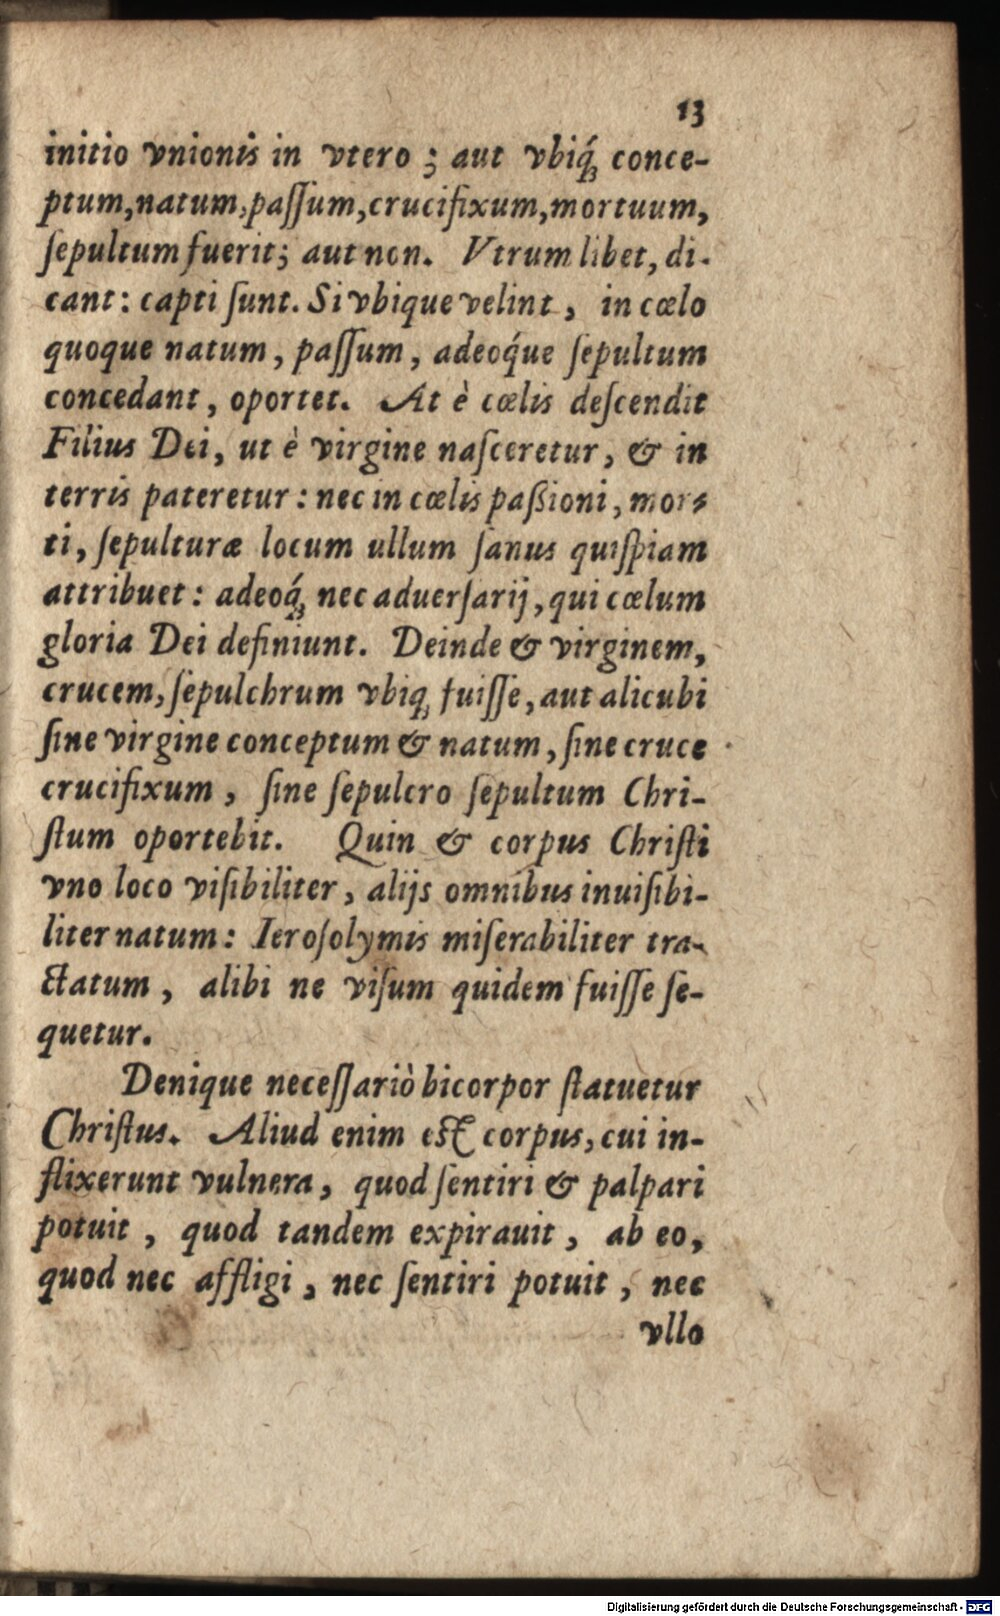 13
initio vnionis in vtero ; aut vbiq́; conce-
ptum,natum,paſſum,crucifixum,mortuum,
ſepultum fuerit; aut non. Vtrum libet, di-
cant: capti ſunt. Si vbique velint , in cœlo
quoque natum , paſſum , adeoq́ue ſepultum
concedant , oportet. At è cœlis deſcendit
Filius Dei, ut è virgine naſceretur , & in
terris pateretur : nec in cœlis paßioni , mor-
ti, ſepulturæ locum ullum ſanus quiſpiam
attribuet : adeoq́; nec aduerſarij , qui cœlum
gloria Dei definiunt. Deinde & virginem,
crucem, ſepulchrum vbiq; fuiſſe, aut alicubi
ſine virgine conceptum & natum , ſine cruce
crucifixum , ſine ſepulcro ſepultum Chri-
ſtum oportebit. Quin & corpus Chriſti
vno loco viſibiliter , alijs omnibus inuiſibi-
liter natum : Ieroſolymis miſerabiliter tra-
ctatum , alibi ne viſum quidem fuiſſe ſe-
quetur.
Denique neceſſariò bicorpor ſtatuetur
Chriſtus. Aliud enim eſt corpus, cui in-
flixerunt vulnera , quod ſentiri & palpari
potuit , quod tandem expirauit , ab eo,
quod nec affligi , nec ſentiri potuit , nec
vllo
Digitalisierung gefördert durch die Deutsche Forschungsgemeinschaft - DFG